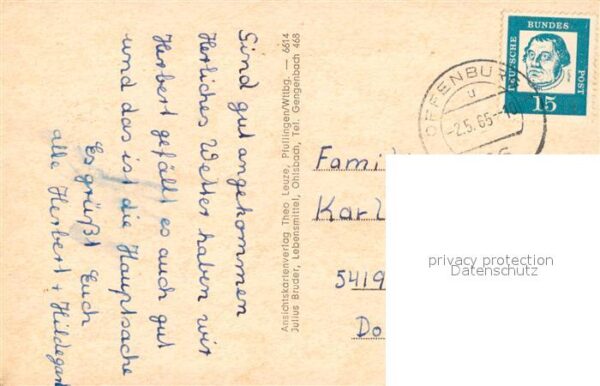 Sind gut angekommen
Herliches Wetter haben wir
Herbert gefällt es auch gut
und das ist die Hauptsache
Es grüßt Euch
alle Herbert + Hildegard
Ansichtskartenverlag Theo Leuze, Pfullingen/Wttbg. — 6614
Julius Bruder, Lebensmittel, Ohlsbach, Tel. Gengenbach 468
DEUTSCHE
BUNDES
POST
15
OFFENBURG
u
-2.5.65.-10
Famil
Karl
5419
Do
privacy protection
Datenschutz